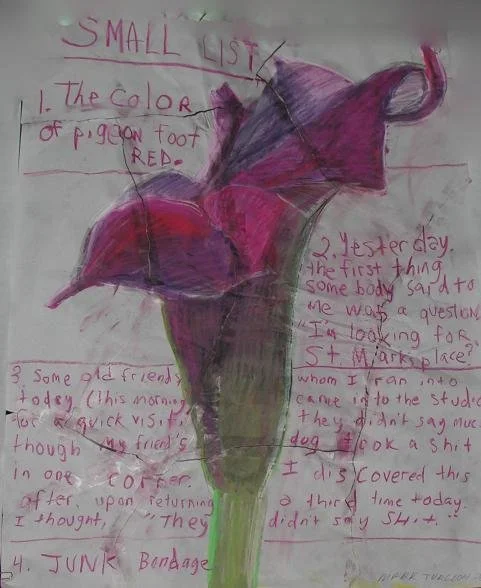 SMALL LIST
1. The COLOR
of pigeon foot
RED.
2. Yesterday.
the first thing
some body said to
me was a question,
"I'm looking for
St. Marks place?"
3. Some old friends whom I ran into
today (this morning came into the Studio
for a quick visit, they didn't say muc
though my friend's dog took a shit
in one corner. I discovered this
after, upon returning a third time today.
I thought, "They didn't say Shit."
4. JUNK Bondage
MARK